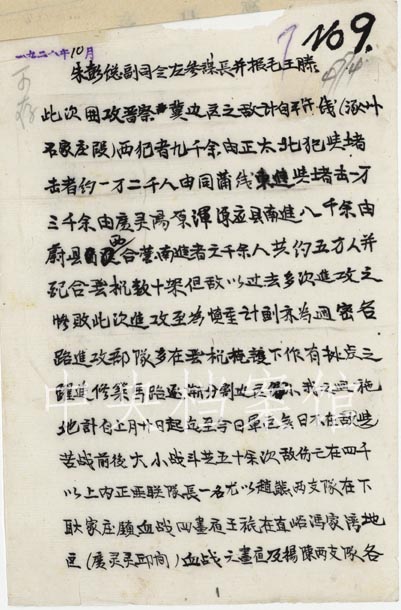 一九三八年10月
No 9.
朱彭总副司令左参谋长并报毛王滕
此次围攻晋察冀边区之敌计自平汉线(涿州
石家庄段)西犯者九千余由正太北犯与堵
击者约一万二千人由同蒲线东进与堵击一万
三千余由广灵阳原浑源应县南进八千余由
蔚县西合营南进者六千余人共约五万人并
配合飞机数十架但敌以过去多次进攻之
惨败此次进攻至为慎重计划亦为周密各
路进攻部队多在飞机掩护下作有据点之
跃进修筑马路逐渐分割边区缩小我之回旋
地计自上月廿日起迄至今日军区无日不在
苦战前后大小战斗共五十余次敌伤亡在四千
以上内正联队长一名尤以赵熊两支队在下
耿家庄镇血战四昼夜王旅在直峪冯家湾地
区(广灵灵邱间)血战六昼夜及杨陈两支队各
中央档案馆